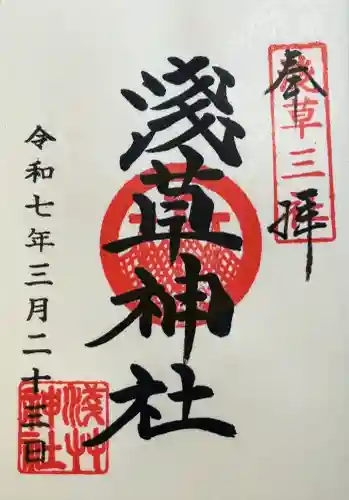 奉拝
淺草三
淺草神社
令和七年三月二十三日
淺草神社